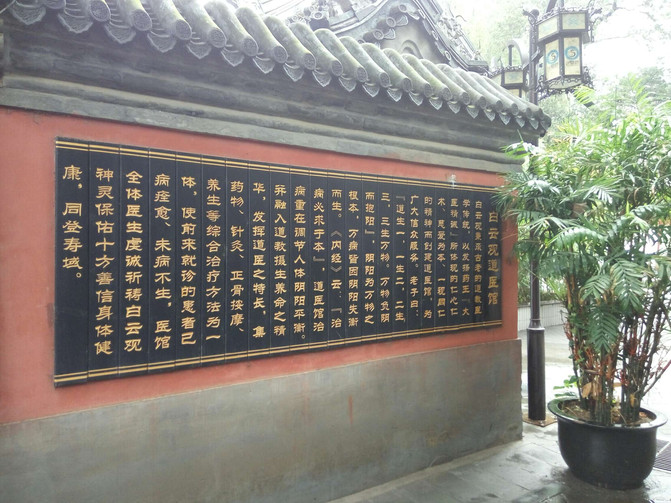 白云观道医馆
白云观秉承古老的道教医
学传统，以发扬药王“大
医精诚”所体现的仁心仁
术、慈爱为本、一视同仁
的精神而创建道医馆，为
广大信众服务。老子曰：
“道生一，一生二，二生
三，三生万物。万物负阴
而抱阳”，阴阳为万物之
根本，万病皆因阴阳失衡
而生。《内经》云：“治
病必求于本”，道医馆治
病重在调节人体阴阳平衡。
并融入道教摄生养命之精
华，发挥道医之特长，集
药物、针灸、正骨按摩、
养生等综合治疗方法为一
体，使前来就诊的患者已
病痊愈、未病不生，医馆
全体医生虔诚祈祷白云观
神灵保佑十方善信身体健
康，同登寿域。